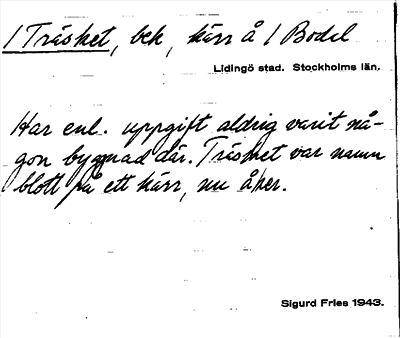 / Träsket, beh, kärr å / Bodel
Lidingö stad. Stockholms län.
Har enl. uppgift aldrig varit nå-
gon byggnad där. Träsket var namn
blott på ett kärr, nu åker.
Sigurd Fries 1943.